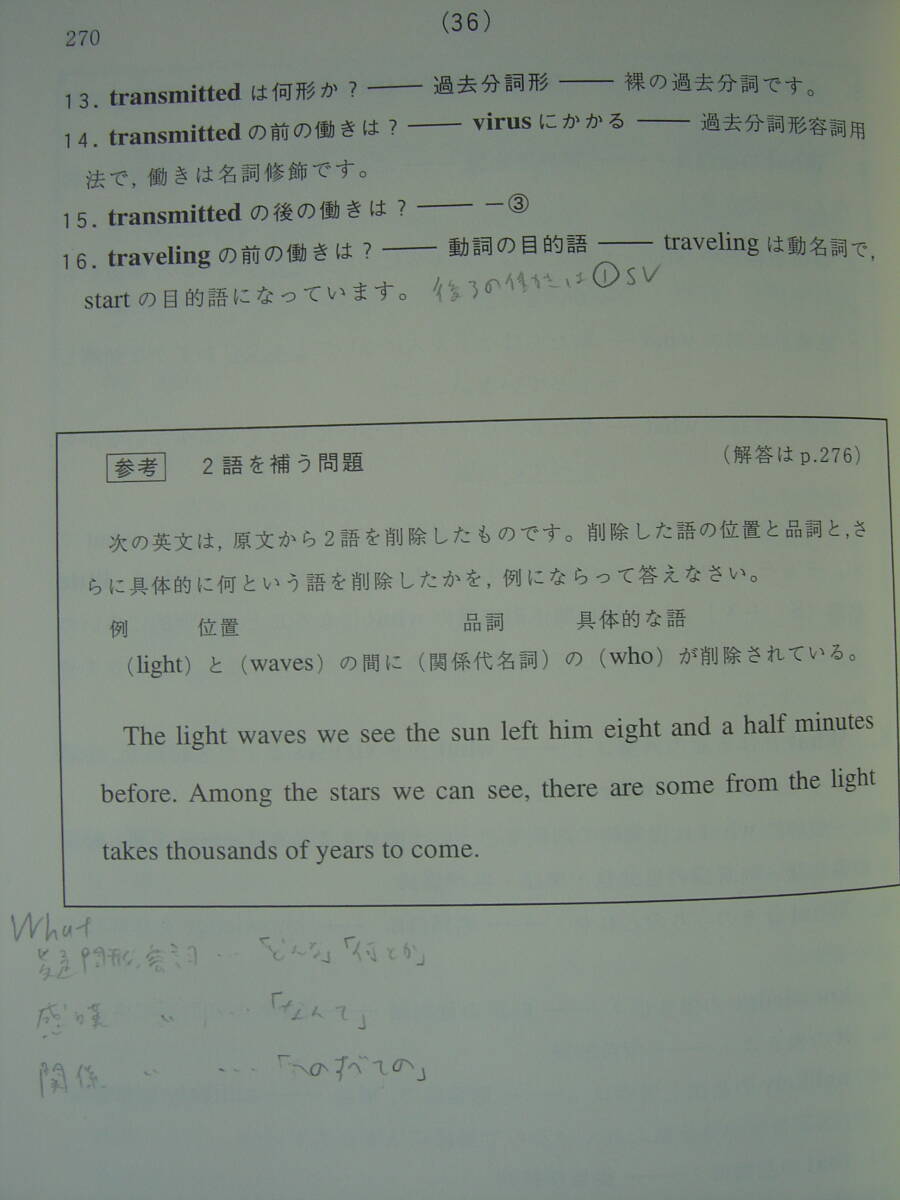 (36)
270
13. transmitted は何形か？―― 過去分詞形 ―― 裸の過去分詞です。
14. transmitted の前の働きは？―― virus にかかる ―― 過去分詞形容詞用
法で，働きは名詞修飾です。
15. transmitted の後の働きは？―― －③
16. traveling の前の働きは？―― 動詞の目的語 ―― traveling は動名詞で，
start の目的語になっています。 後ろの働きは①SV
参考 2語を補う問題 （解答は p.276）
次の英文は，原文から2語を削除したものです。削除した語の位置と品詞と，さ
らに具体的に何という語を削除したかを，例にならって答えなさい。
例 位置 品詞 具体的な語
（light）と（waves）の間に（関係代名詞）の（who）が削除されている。
The light waves we see the sun left him eight and a half minutes
before. Among the stars we can see, there are some from the light
takes thousands of years to come.
What
疑問形容詞 … 「どんな」「何とか」
感嘆 〃 … 「なんて」
関係 〃 … 「〜のすべての」